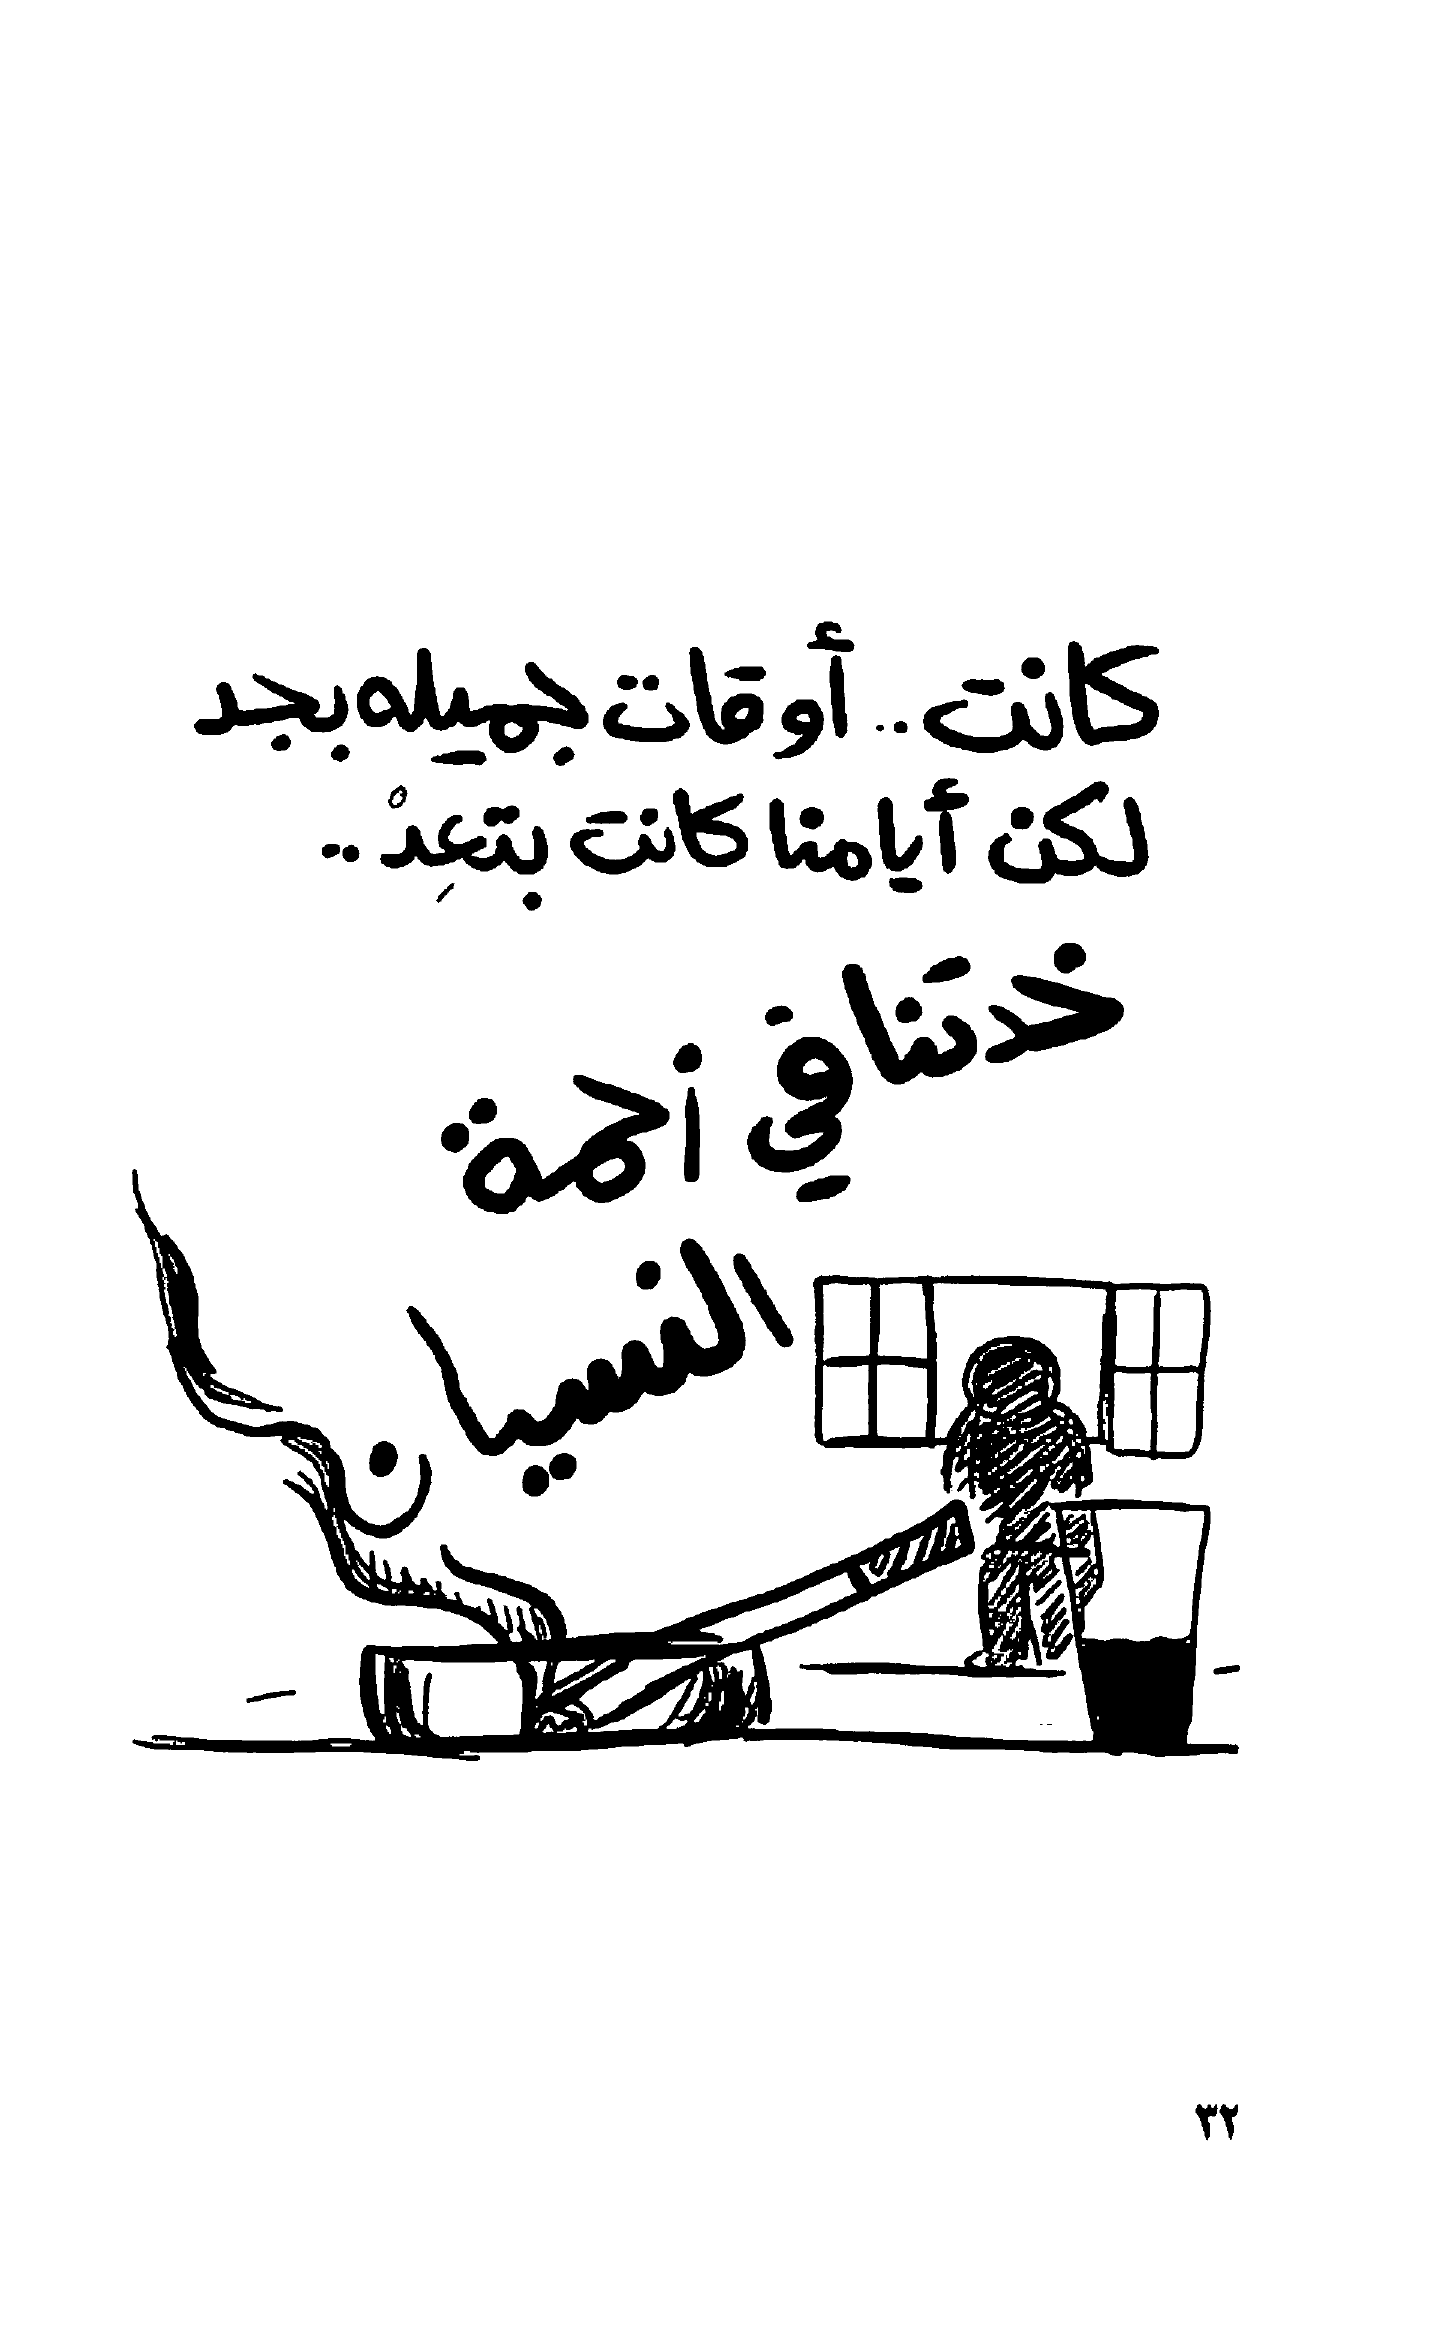 كانت.. أوقات جميله بجد
لكن أيامنا كانت بتعِدْ..
خدتنا في زحمة
النسيان
٣٢